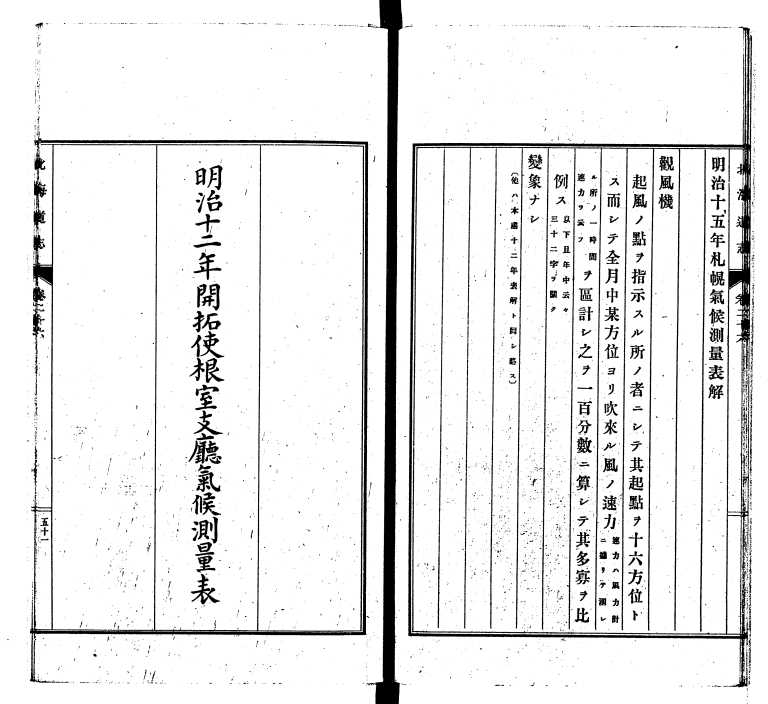 北海道志 卷二十六
明治十五年札幌氣候測量表解
觀風機
起風ノ點ヲ指示スル所ノ者ニシテ其起點ヲ十六方位ト
ス而シテ全月中某方位ヨリ吹來ル風ノ速力速力ハ風力計ニ據リテ測レ
ル所ノ一時間速力ヲ云フヲ區計シ之ヲ一百分數ニ算シテ其多寡ヲ比
例ス以下且年中云々三十二字ヲ闕ク
變象ナシ
(他ハ本港十二年表解ト同シ略ス)
明治十二年開拓使根室支廳氣候測量表
北海道志 卷二十六
五十一